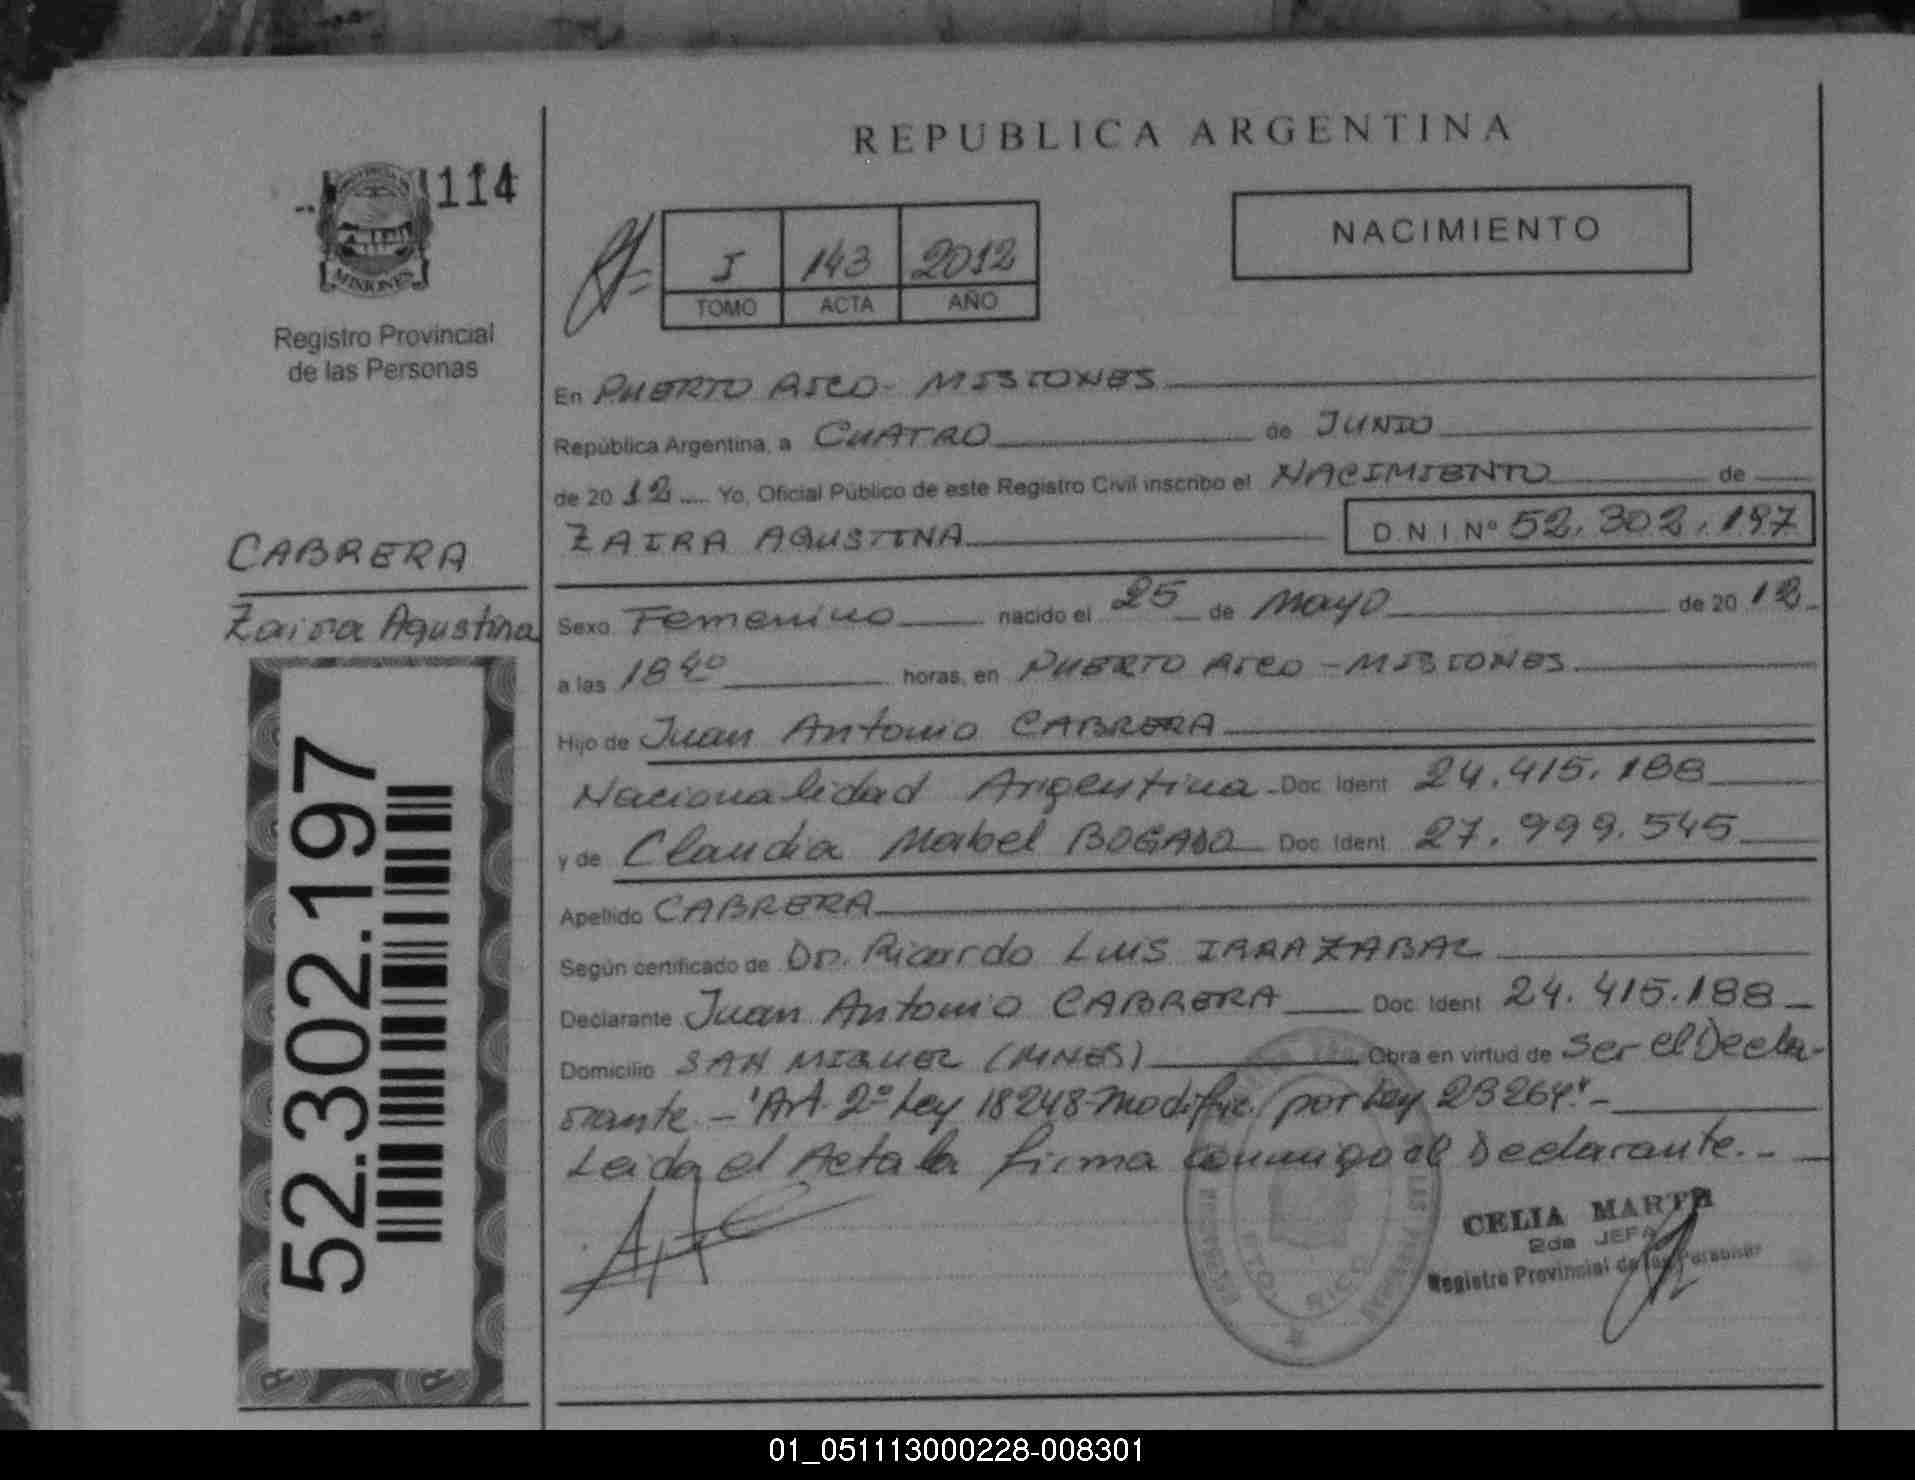 REPUBLICA ARGENTINA
114
MISIONES
Registro Provincial
de las Personas
I 143 2012
TOMO ACTA AÑO
NACIMIENTO
En PUERTO RICO - MISIONES
República Argentina, a CUATRO de JUNIO
de 2012 Yo, Oficial Público de este Registro Civil inscribo el NACIMIENTO de
ZAIRA AGUSTINA D N I Nº 52.302.197
CABRERA
Zaira Agustina
Sexo Femenino nacido el 25 de Mayo de 2012
a las 18 40 horas, en PUERTO RICO - MISIONES
Hijo de Juan Antonio CABRERA
Nacionalidad Argentina - Doc. Ident 24.415.188
y de Claudia Mabel BOGADO Doc. Ident. 27.999.545
Apellido CABRERA
Según certificado de Dr. Ricardo LUIS IRRAZABAL
Declarante Juan Antonio CABRERA Doc. Ident 24.415.188
Domicilio SAN MIGUEL (MNES) Obra en virtud de Ser el Decla-
rante. - "Art. 2º Ley 18248 Modific. por Ley 23264" -
Leida el Acta la firma conmigo el Declarante. -
52.302.197
CELIA MARTA
2da JEFA
Registro Provincial de las Personas
01_051113000228-008301